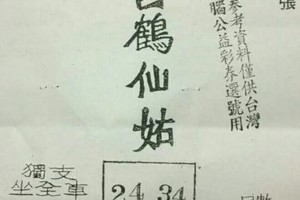 張
參考資料僅供台灣
腦公益彩券選號用
白鶴仙姑
獨支
坐全車
24 34